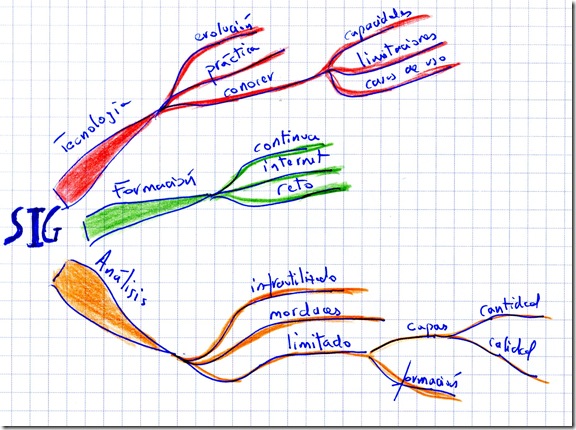 SIG
Tecnología
evolución
práctica
conocer
capacidades
limitaciones
casos de uso
Formación
continua
internet
reto
Análisis
infrautilizado
limitado
capas
cantidad
calidad
formación